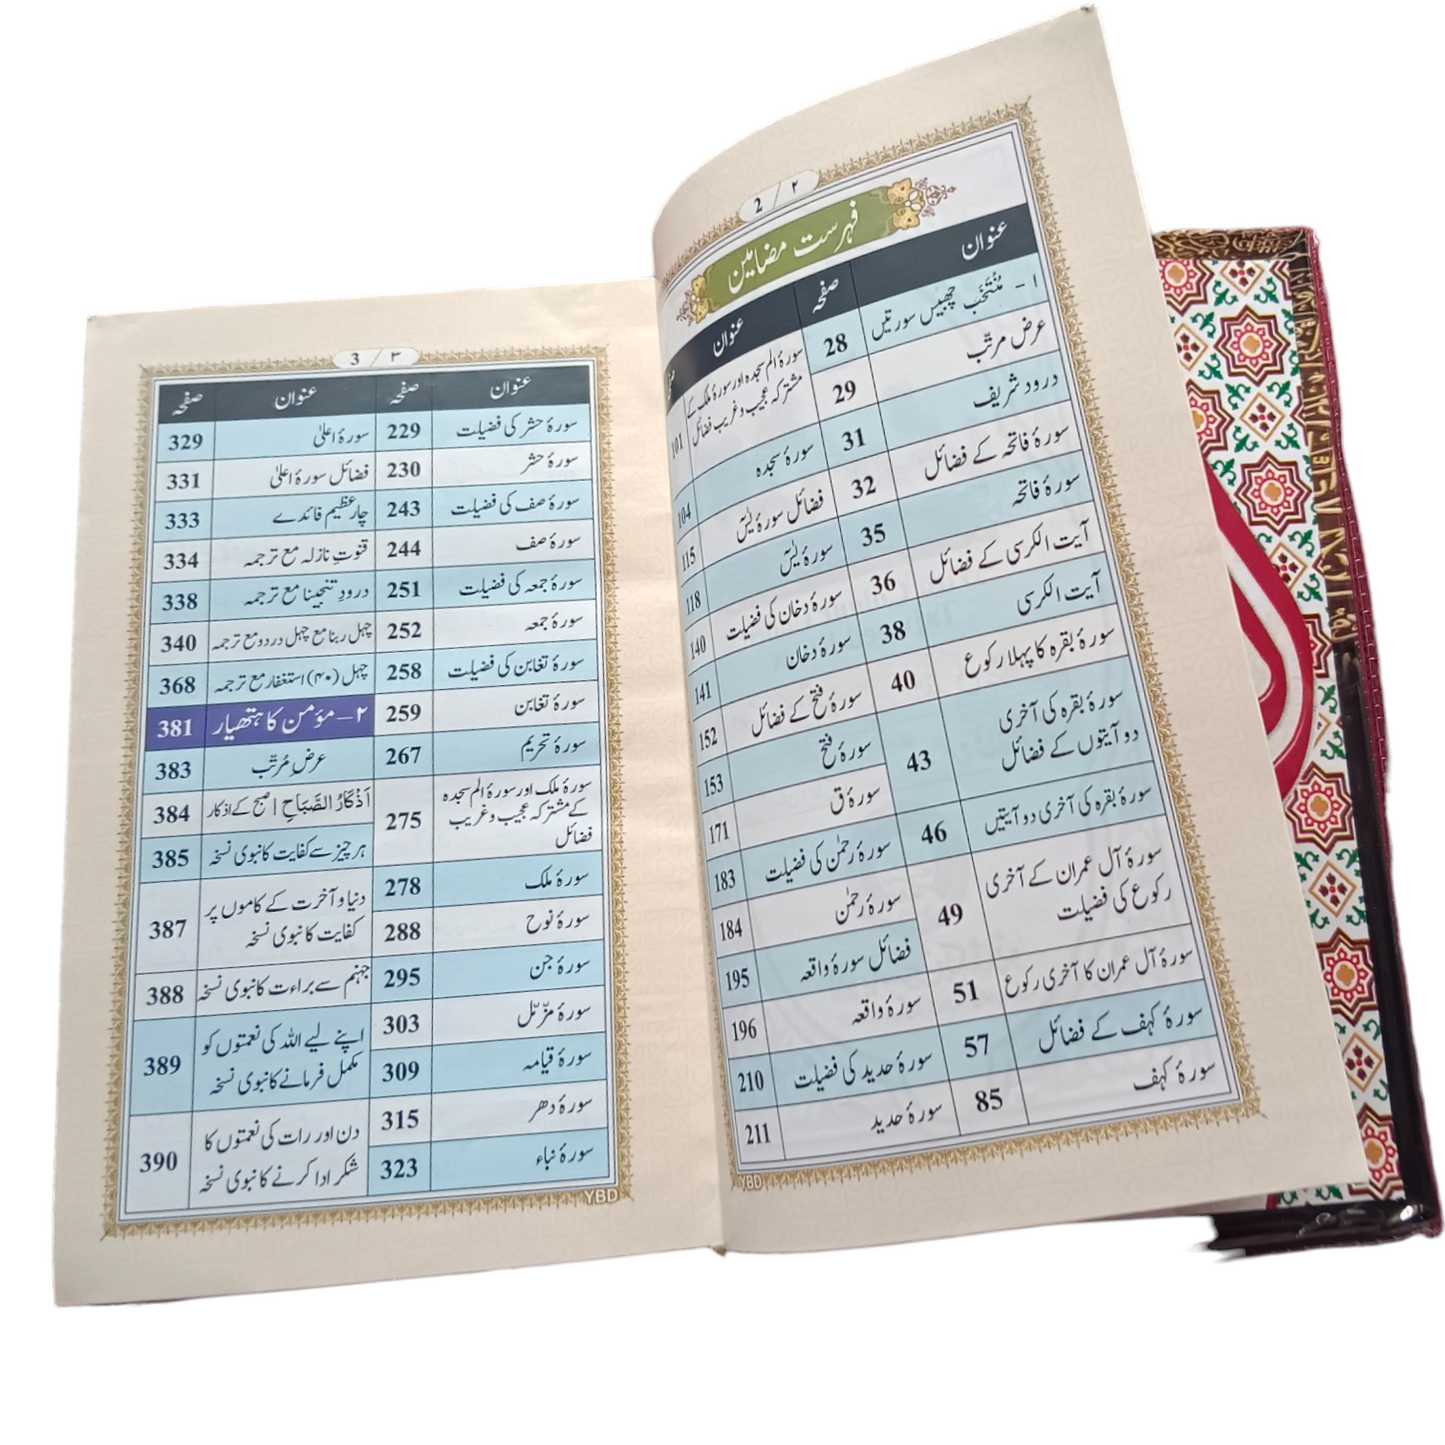 2 / ۲
فہرست مضامین
عنوان صفحہ
۱ - مُنْتَخَب چھبیس سورتیں 28
عرض مرتّب 29
درود شریف 31
سورۂ فاتحہ کے فضائل 32
سورۂ فاتحہ 35
آیت الکرسی کے فضائل 36
آیت الکرسی 38
سورۂ بقرہ کا پہلا رکوع 40
سورۂ بقرہ کی آخری
دو آیتوں کے فضائل 43
سورۂ بقرہ کی آخری دو آیتیں 46
سورۂ آل عمران کے آخری
رکوع کی فضیلت 49
سورۂ آل عمران کا آخری رکوع 51
سورۂ کہف کے فضائل 57
سورۂ کہف 85
عنوان
سورۂ الم سجدہ اور سورۂ ملک کے
مشترکہ عجیب و غریب فضائل 101
سورۂ سجدہ 104
فضائل سورۂ یٰسٓ 115
سورۂ یٰسٓ 118
سورۂ دخان کی فضیلت 140
سورۂ دخان 141
سورۂ فتح کے فضائل 152
سورۂ فتح 153
سورۂ ق 171
سورۂ رحمٰن کی فضیلت 183
سورۂ رحمٰن 184
فضائل سورۂ واقعہ 195
سورۂ واقعہ 196
سورۂ حدید کی فضیلت 210
سورۂ حدید 211
YBD
3 / ۳
عنوان صفحہ
سورۂ حشر کی فضیلت 229
سورۂ حشر 230
سورۂ صف کی فضیلت 243
سورۂ صف 244
سورۂ جمعہ کی فضیلت 251
سورۂ جمعہ 252
سورۂ تغابن کی فضیلت 258
سورۂ تغابن 259
سورۂ تحریم 267
سورۂ ملک اور سورۂ الم سجدہ
کے مشترکہ عجیب و غریب
فضائل 275
سورۂ ملک 278
سورۂ نوح 288
سورۂ جن 295
سورۂ مزّمّل 303
سورۂ قیامہ 309
سورۂ دھر 315
سورۂ نباء 323
عنوان صفحہ
سورۂ اعلیٰ 329
فضائل سورۂ اعلیٰ 331
چار عظیم فائدے 333
قنوتِ نازلہ مع ترجمہ 334
درودِ تنجینا مع ترجمہ 338
چہل ربنا مع چہل درود مع ترجمہ 340
چہل (۴۰) استغفار مع ترجمہ 368
۲ - مؤمن کا ہتھیار 381
عرضِ مُرتّب 383
اَذْکَارُ الصَّبَاحِ | صبح کے اذکار 384
ہر چیز سے کفایت کا نبوی نسخہ 385
دنیا و آخرت کے کاموں پر
کفایت کا نبوی نسخہ 387
جہنم سے براءت کا نبوی نسخہ 388
اپنے لیے اللہ کی نعمتوں کو
مکمل فرمانے کا نبوی نسخہ 389
دن اور رات کی نعمتوں کا
شکر ادا کرنے کا نبوی نسخہ 390
YBD